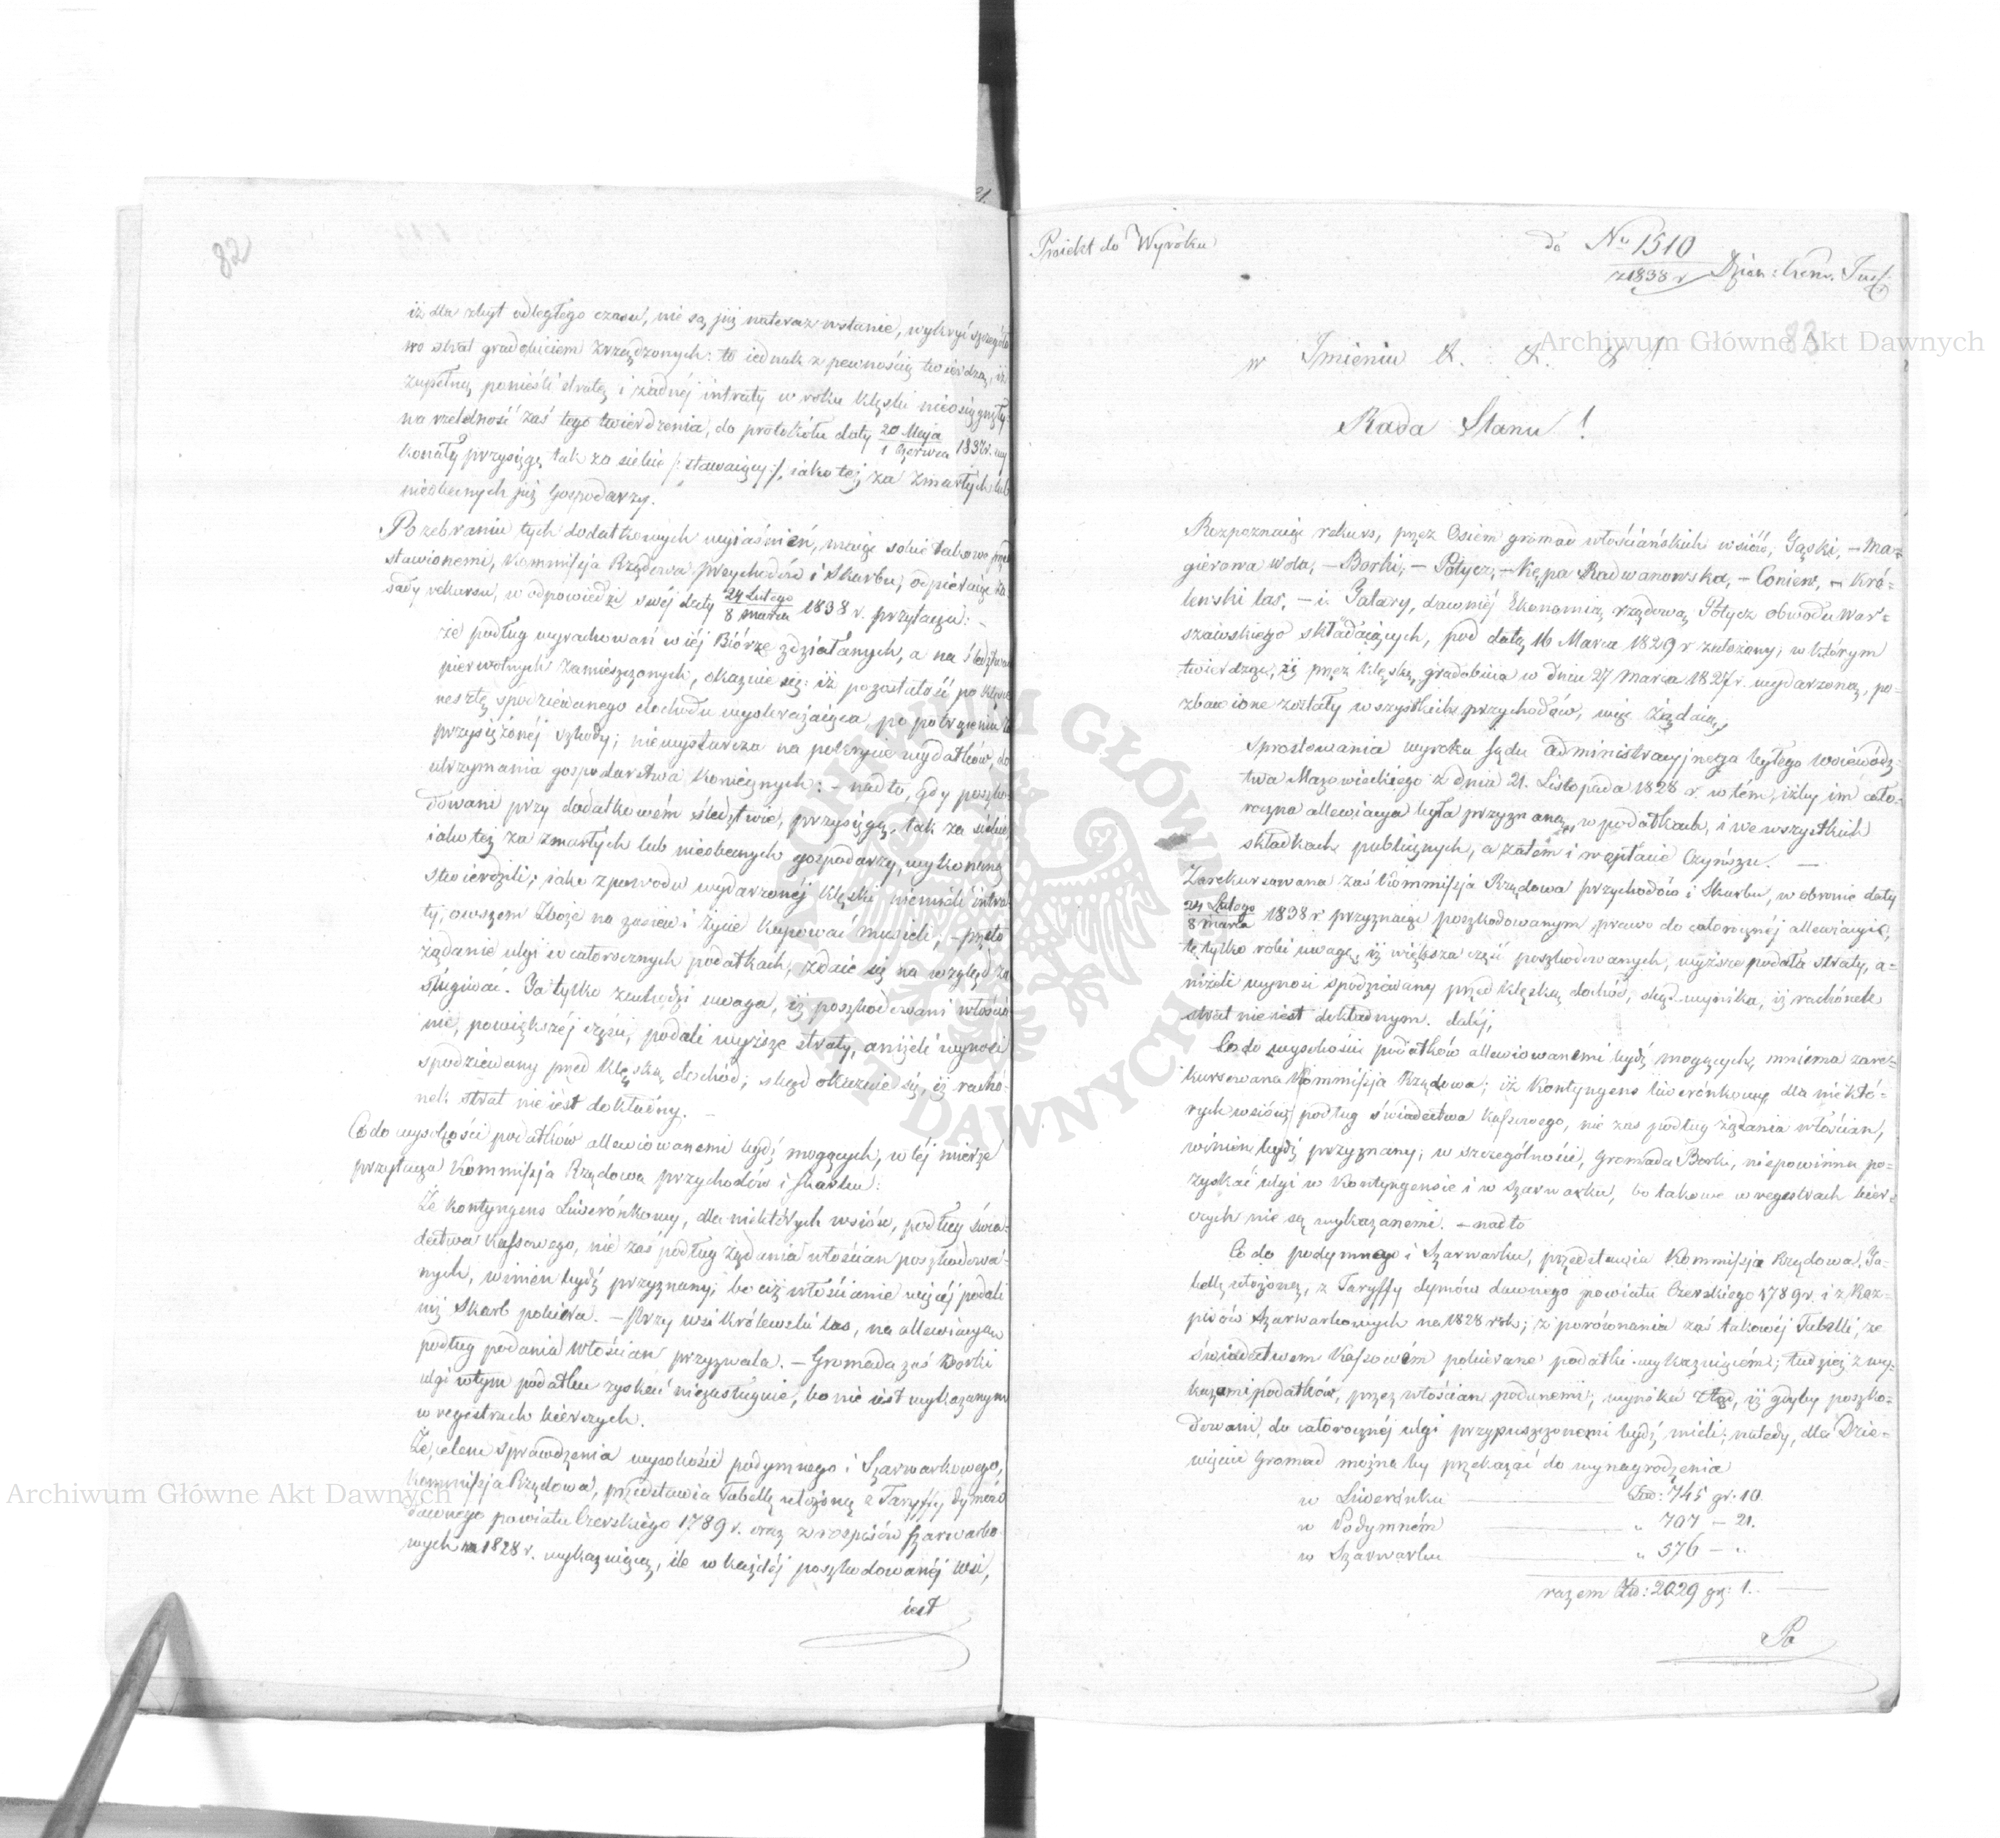 82
iż dla zbyt odległego czasu, nie są już nateraz wstanie, wykryć szczegóło
wo strat gradobiciem zrządzonych: to iednak z pewnością twierdzą, iż
zupełną ponieśli stratę i żadnéj intraty w roku klęski nieosiągnęły.
na rzetelność zaś tego twierdzenia, do protokółu daty 20 Maja / 1 Czerwca 1837 r. wy
konały przysięgę tak za siebie /: stawaiący :/, iako też za zmarłych lub
nieobecnych już Gospodarzy.
Po zebraniu tych dodatkowych wyiaśnień, maiąc sobie takowe przed
stawionemi, Kommissja Rządowa Przychodów i Skarbu, odpieraiąc za
sady rekursu, w odpowiedzi swéj daty 24 Lutego / 8 Marca 1838 r. przytacza: –
że podług wyrachowań w iéj Biórze zdziałanych, a na śledztwach
pierwotnych zamieszczonych, okazuie się: iż pozostałość po klęsce
resztę spodziewanego dochodu wyobrażaiąca, po potrąceniu za
przysiężonéj szkody; niewystarcza na pokrycie wydatków, do
utrzymania gospodarstwa koniecznych: – nadto, gdy poszko
dowani przy dodatkowém śledztwie, przysięgą, tak za siebie
iako też za zmarłych lub nieobecnych gospodarzy, wykonaną
stwierdzili; iako z powodu wydarzonéj klęski, niemieli intra
ty, owszem zboże na zasiew i życie kupować musieli, – przeto
żądanie ulgi w całorocznych podatkach, zdaie się na wzgląd za
sługiwać. Ta tylko zachodzi uwaga, iż poszkodowani włościa
nie, powiększéj części, podali wyższe straty, aniżeli wynosi
spodziewany przed klęską dochód; skąd okazuie się, iż rachu-
nek strat nie iest dokładny. –
Co do wysokości podatków allewiowanemi bydź mogących, w téj mierze
przytacza Kommissja Rządowa przychodów i Skarbu:
Że kontyngens Liwerónkowy, dla niektórych wsiów, podług świa-
dectwa Kassowego, nie zaś podług żądania włościan poszkodowa-
nych, winien bydź przyznany; bo ciż włościanie więcéj podali
niż Skarb pobiera. – Przy wsi Królewski las, na allewiacyą
podług podania włościan przyzwala. – Gromada zaś Borki
ulgi w tym podatku zyskać niezasługuie, bo nie iest wykazanym
w regestrach bierczych.
Że, celem sprawdzenia wysokości podymnego i Szarwarkowego,
Kommissja Rządowa, przedstawia Tabellę ułożoną z Taryffy dymów
dawnego powiatu Czerskiego 1789 r. oraz z rospisów szarwarko
wych na 1828 r. wykazuiącą, ile w każdéj poszkodowanéj wsi,
iest
Proiekt do Wyroku
do No 1510
z 1838 r
83
w Imieniu &. &. &!
Rada Stanu!
Rozpoznaiąc rekurs, przez Osiem gromad włościańskich wsiów, Gąski, – Ma-
gierowa wola, – Borki, – Potycz, – Kępa Radwanowska, – Coniew, – Kró-
lewski las, – i Tatary, dawniéj Ekonomią rządową Potycz obwodu War-
szawskiego składaiących, pod datą 16 Marca 1829 r założony; w którym
twierdząc, iż przez klęskę gradobicia w dniu 27 Marca 1827 r. wydarzoną, po-
zbawione zostały wszystkich przychodów, więc żądaią,
sprostowania wyroku Sądu administracyjnego byłego woiewódz
twa Mazowieckiego z dnia 21. Listopada 1828 r. w tém, iżby im cało-
roczna allewiacya była przyznaną, w podatkach, i we wszystkich
składkach publicznych, a zatém i w opłacie Czynszu. –
Zarekursowana zaś Kommissja Rządowa przychodów i Skarbu, w obronie daty
24 Lutego / 8 Marca 1838 r przyznaiąc poszkodowanym prawo do całorocznéj allewiacyi,
tę tylko robi uwagę, iż większa część poszkodowanych, wyższe podała straty, a-
niżeli wynosi spodziewany przed klęską dochód, skąd wynika, iż rachónek
strat nie iest dokładnym. daléj,
Co do wysokości podatków allewiowanemi bydź mogących, mniema zare-
kursowana Kommissja Rządowa; iż kontyngens liwerónkowy dla niektó-
rych wsiów, podług świadectwa kassowego, nie zaś podług żądania włościan,
winien bydź przyznany; w szczególności, Gromada Borki, niepowinna po-
zyskać ulgi w kontyngensie i w szarwarku, bo takowe w regestrach bier-
czych nie są wykazanemi. – nadto
Co do podymnego i Szarwarku, przedstawia Kommissja Rządowa, Ta-
bellę ułożoną, z Taryffy dymów dawnego powiatu Czerskiego 1789 r. i z Roz-
pisów Szarwarkowych na 1828 rok; z porównania zaś takowéj Tabelli, ze
świadectwem Kassowém pobierane podatki wykazuiącém; tudzież z wy-
kazami podatków, przez włościan podanemi; wynika ztąd, iż gdyby poszko-
dowani, do całorocznéj ulgi przypuszczonemi bydź mieli; natedy, dla Dzie-
więciu Gromad można by przekazać do wynagrodzenia
w Liwerónku — Złp: 745 gr. 10
w Podymném — „ 707 – 21.
w Szarwarku — „ 576 – „
razem Złp: 2029 gr: 1.
Po
Archiwum Główne Akt Dawnych
Archiwum Główne Akt Dawnych
ARCHIWUM GŁÓWNE AKT DAWNYCH